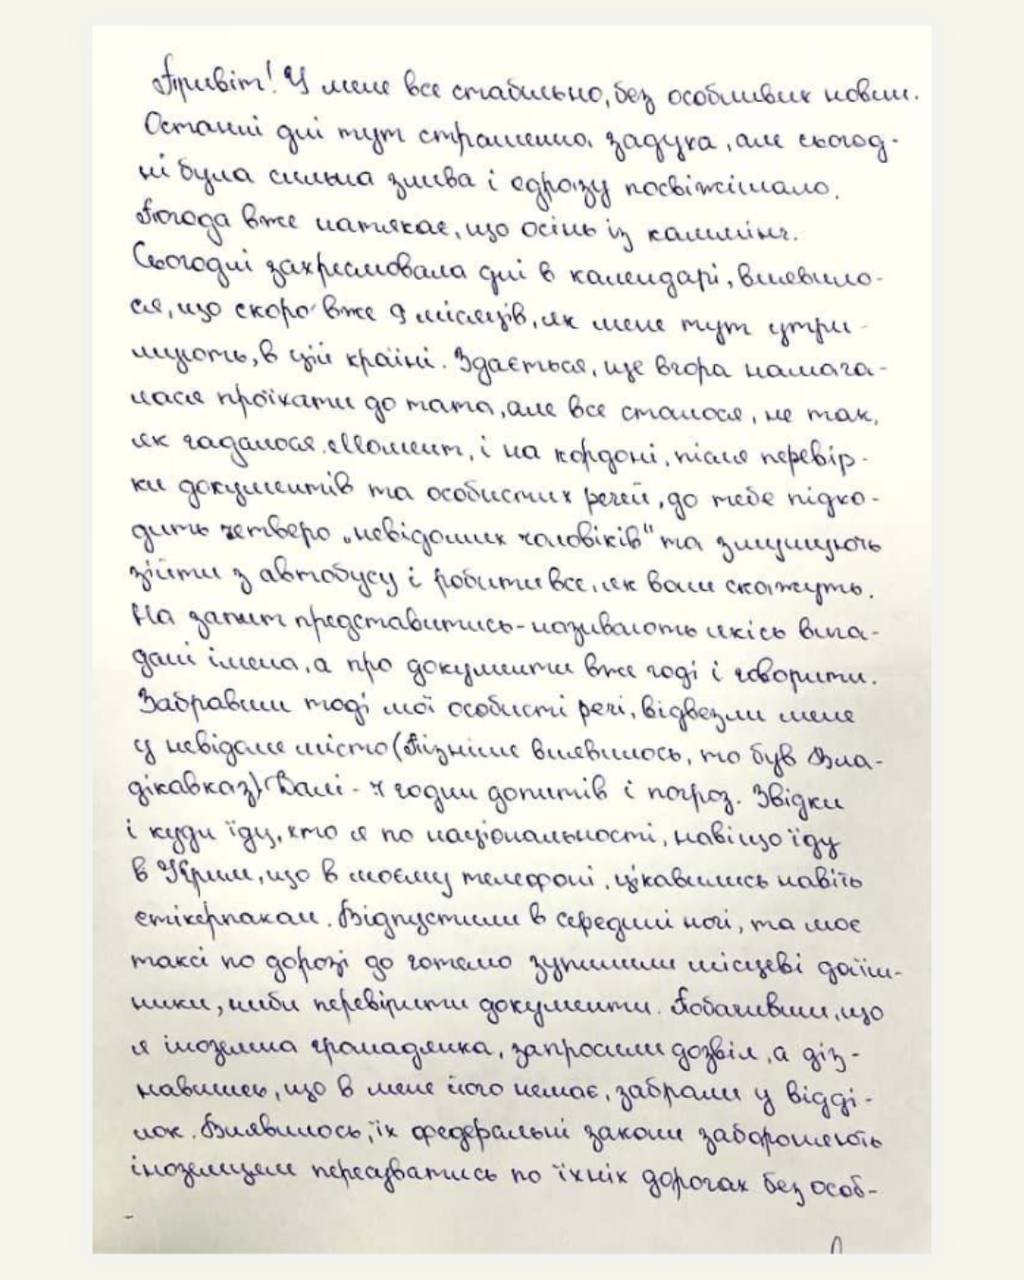 Привіт! У мене все стабільно, без особливих новин.
Останні дні тут страшенна задуха, але сьогод-
ні була сильна злива і одразу посвіжішало.
Погода вже натякає, що осінь із камінг.
Сьогодні закреслювала дні в календарі, виявило-
ся, що скоро вже 9 місяців, як мене тут утри-
мують, в цій країні. Здається, ще вчора намага-
лася проїхати до тата, але все сталося, не так,
як гадалося. Момент, і на кордоні, після перевір-
ки документів та особистих речей, до тебе підхо-
дить четверо „невідомих чоловіків" та змушують
зійти з автобусу і робити все, як вони скажуть.
На запит представитись - називають якісь вига-
дані імена, а про документи вже годі і говорити.
Забравши тоді мої особисті речі, відвезли мене
у невідоме місто (Пізніше виявилось, то був Вла-
дікавказ). Далі - 7 годин допитів і погроз. Звідки
і куди їду, хто я по національності, навіщо їду
в Крим, що в моєму телефоні, цікавились навіть
стікерпаком. Відпустили в середині ночі, та моє
таксі по дорозі до готелю зупинили місцеві даїш-
ники, ніби перевірити документи. Побачивши, що
я іноземна громадянка, запросили дозвіл, а діз-
навшись, що в мене його немає, забрали у відді-
лок. Виявилось, їх федеральні закони забороняють
іноземцям пересуватись по їхніх дорогах без особ-